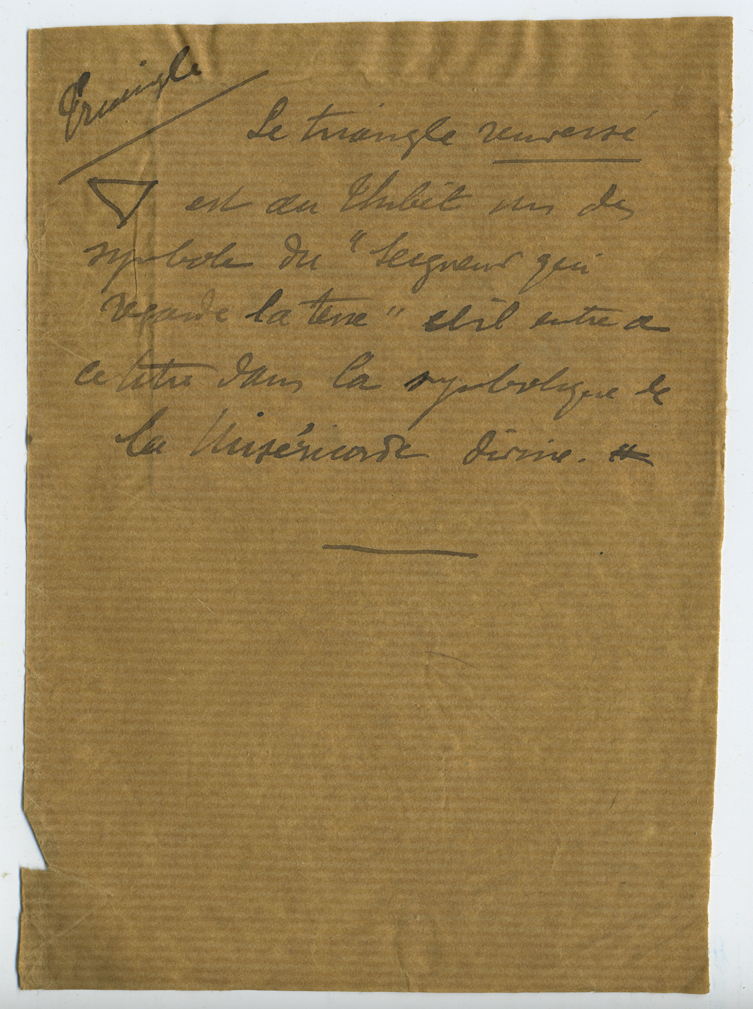 Triangle
Le triangle renversé
est au Thibêt un des
symbole du "Seigneur qui
regarde la terre" et il entre a
ce titre dans la symbolique de
la Miséricorde divine.